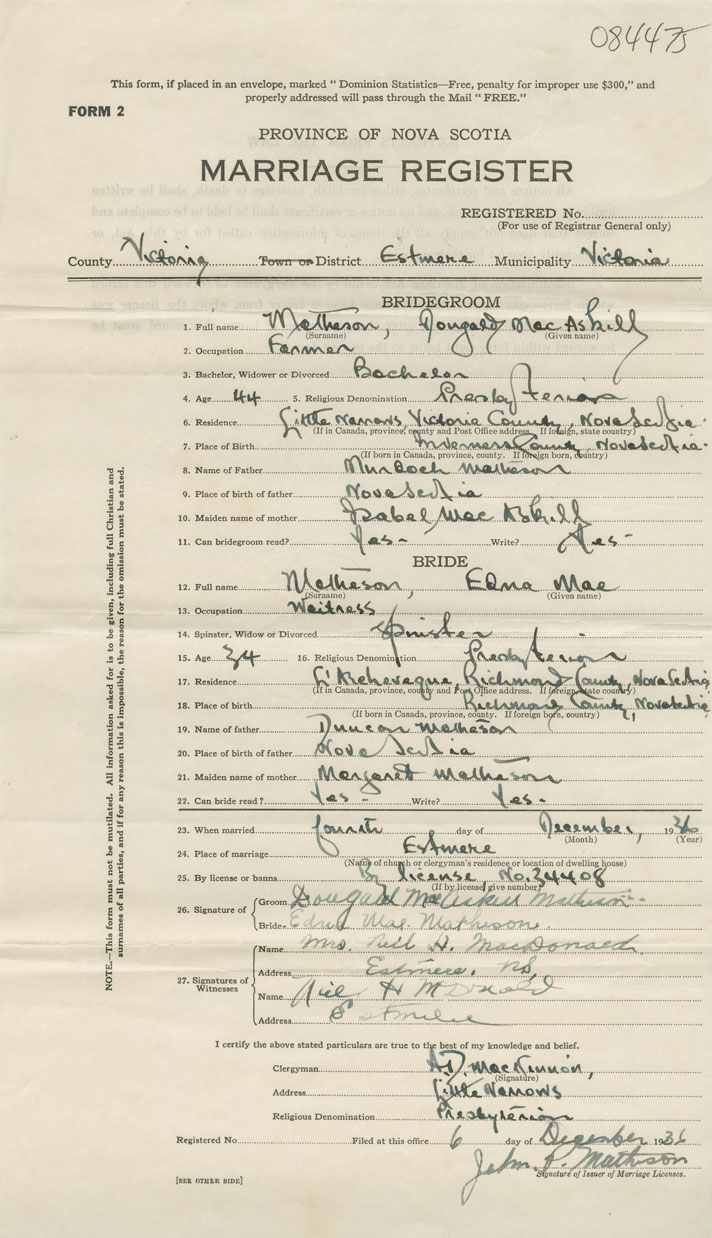 084475
This form, if placed in an envelope, marked "Dominion Statistics—Free, penalty for improper use $300," and
properly addressed will pass through the Mail "FREE."
FORM 2
PROVINCE OF NOVA SCOTIA
MARRIAGE REGISTER
REGISTERED No.
(For use of Registrar General only)
County Victoria Town or District Estmere Municipality Victoria
BRIDEGROOM
1. Full name Matheson, Dougald MacAskill
(Surname) (Given name)
2. Occupation Farmer
3. Bachelor, Widower or Divorced Bachelor
4. Age 44 5. Religious Denomination Presbyterian
6. Residence Little Narrows, Victoria County, Nova Scotia.
(If in Canada, province, county and Post Office address. If foreign, state country)
7. Place of Birth Inverness County, Nova Scotia.
(If born in Canada, province, county. If foreign born, country)
8. Name of Father Murdoch Matheson
9. Place of birth of father Nova Scotia
10. Maiden name of mother Isabel MacAskill
11. Can bridegroom read? Yes- Write? Yes-
BRIDE
12. Full name Matheson, Edna Mae
(Surname) (Given name)
13. Occupation Waitress
14. Spinster, Widow or Divorced Spinster
15. Age 34 16. Religious Denomination Presbyterian
17. Residence L'Archeveque, Richmond County, Nova Scotia
(If in Canada, province, county and Post Office address. If foreign, state country)
18. Place of birth Richmond County, Nova Scotia
(If born in Canada, province, county. If foreign born, country)
19. Name of father Duncan Matheson
20. Place of birth of father Nova Scotia
21. Maiden name of mother Margaret Matheson
22. Can bride read? Yes- Write? Yes-
23. When married fourth day of December, 1936
(Month) (Year)
24. Place of marriage Estmere
(Name of church or clergyman's residence or location of dwelling house)
25. By license or banns By license, No. 34408
(If by license give number)
26. Signature of Groom Dougald MacAskill Matheson
Bride Edna Mae Matheson.
27. Signatures of Witnesses Name Mrs. Neil H. MacDonald
Address Estmere, N.S.
Name Niel H McDonald
Address Estmere
I certify the above stated particulars are true to the best of my knowledge and belief.
Clergyman A.D. MacKinnon,
(Signature)
Address Little Narrows
Religious Denomination Presbyterian
Registered No. Filed at this office 6 day of December 1936
John P. Matheson
Signature of Issuer of Marriage Licenses.
[SEE OTHER SIDE]
NOTE.—This form must not be mutilated. All information asked for is to be given, including full Christian and
surnames of all parties, and if for any reason this is impossible, the reason for the omission must be stated.